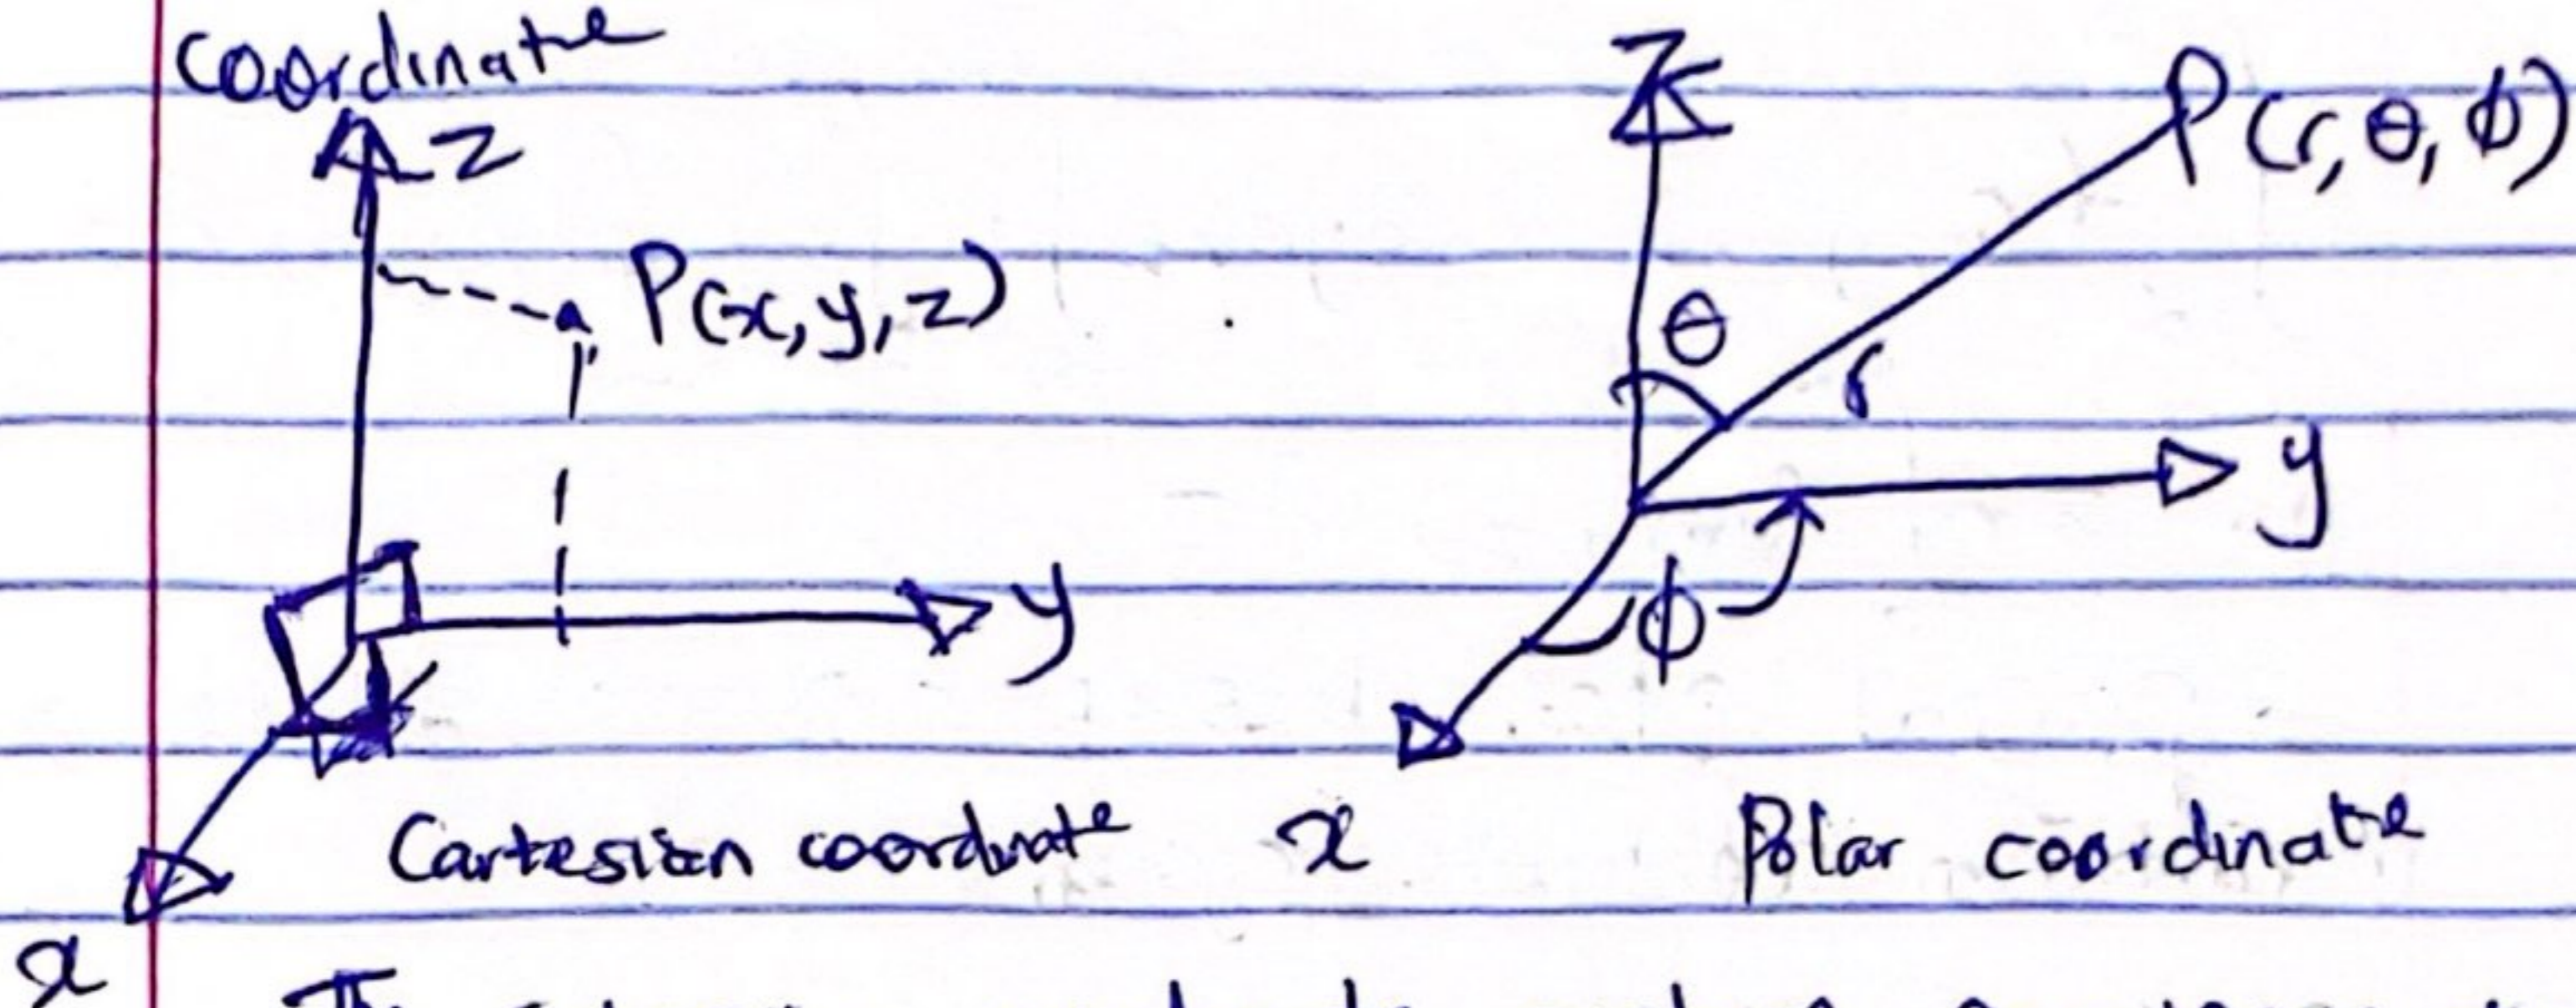 coordinate
z
P(x, y, z)
y
x
Cartesian coordinate
z
P(r, θ, ϕ)
θ
r
y
ϕ
x
Polar coordinate